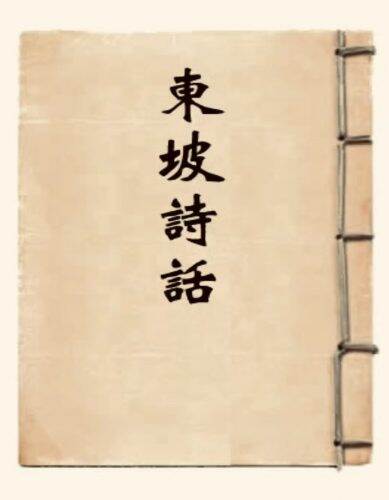 東坡詩話